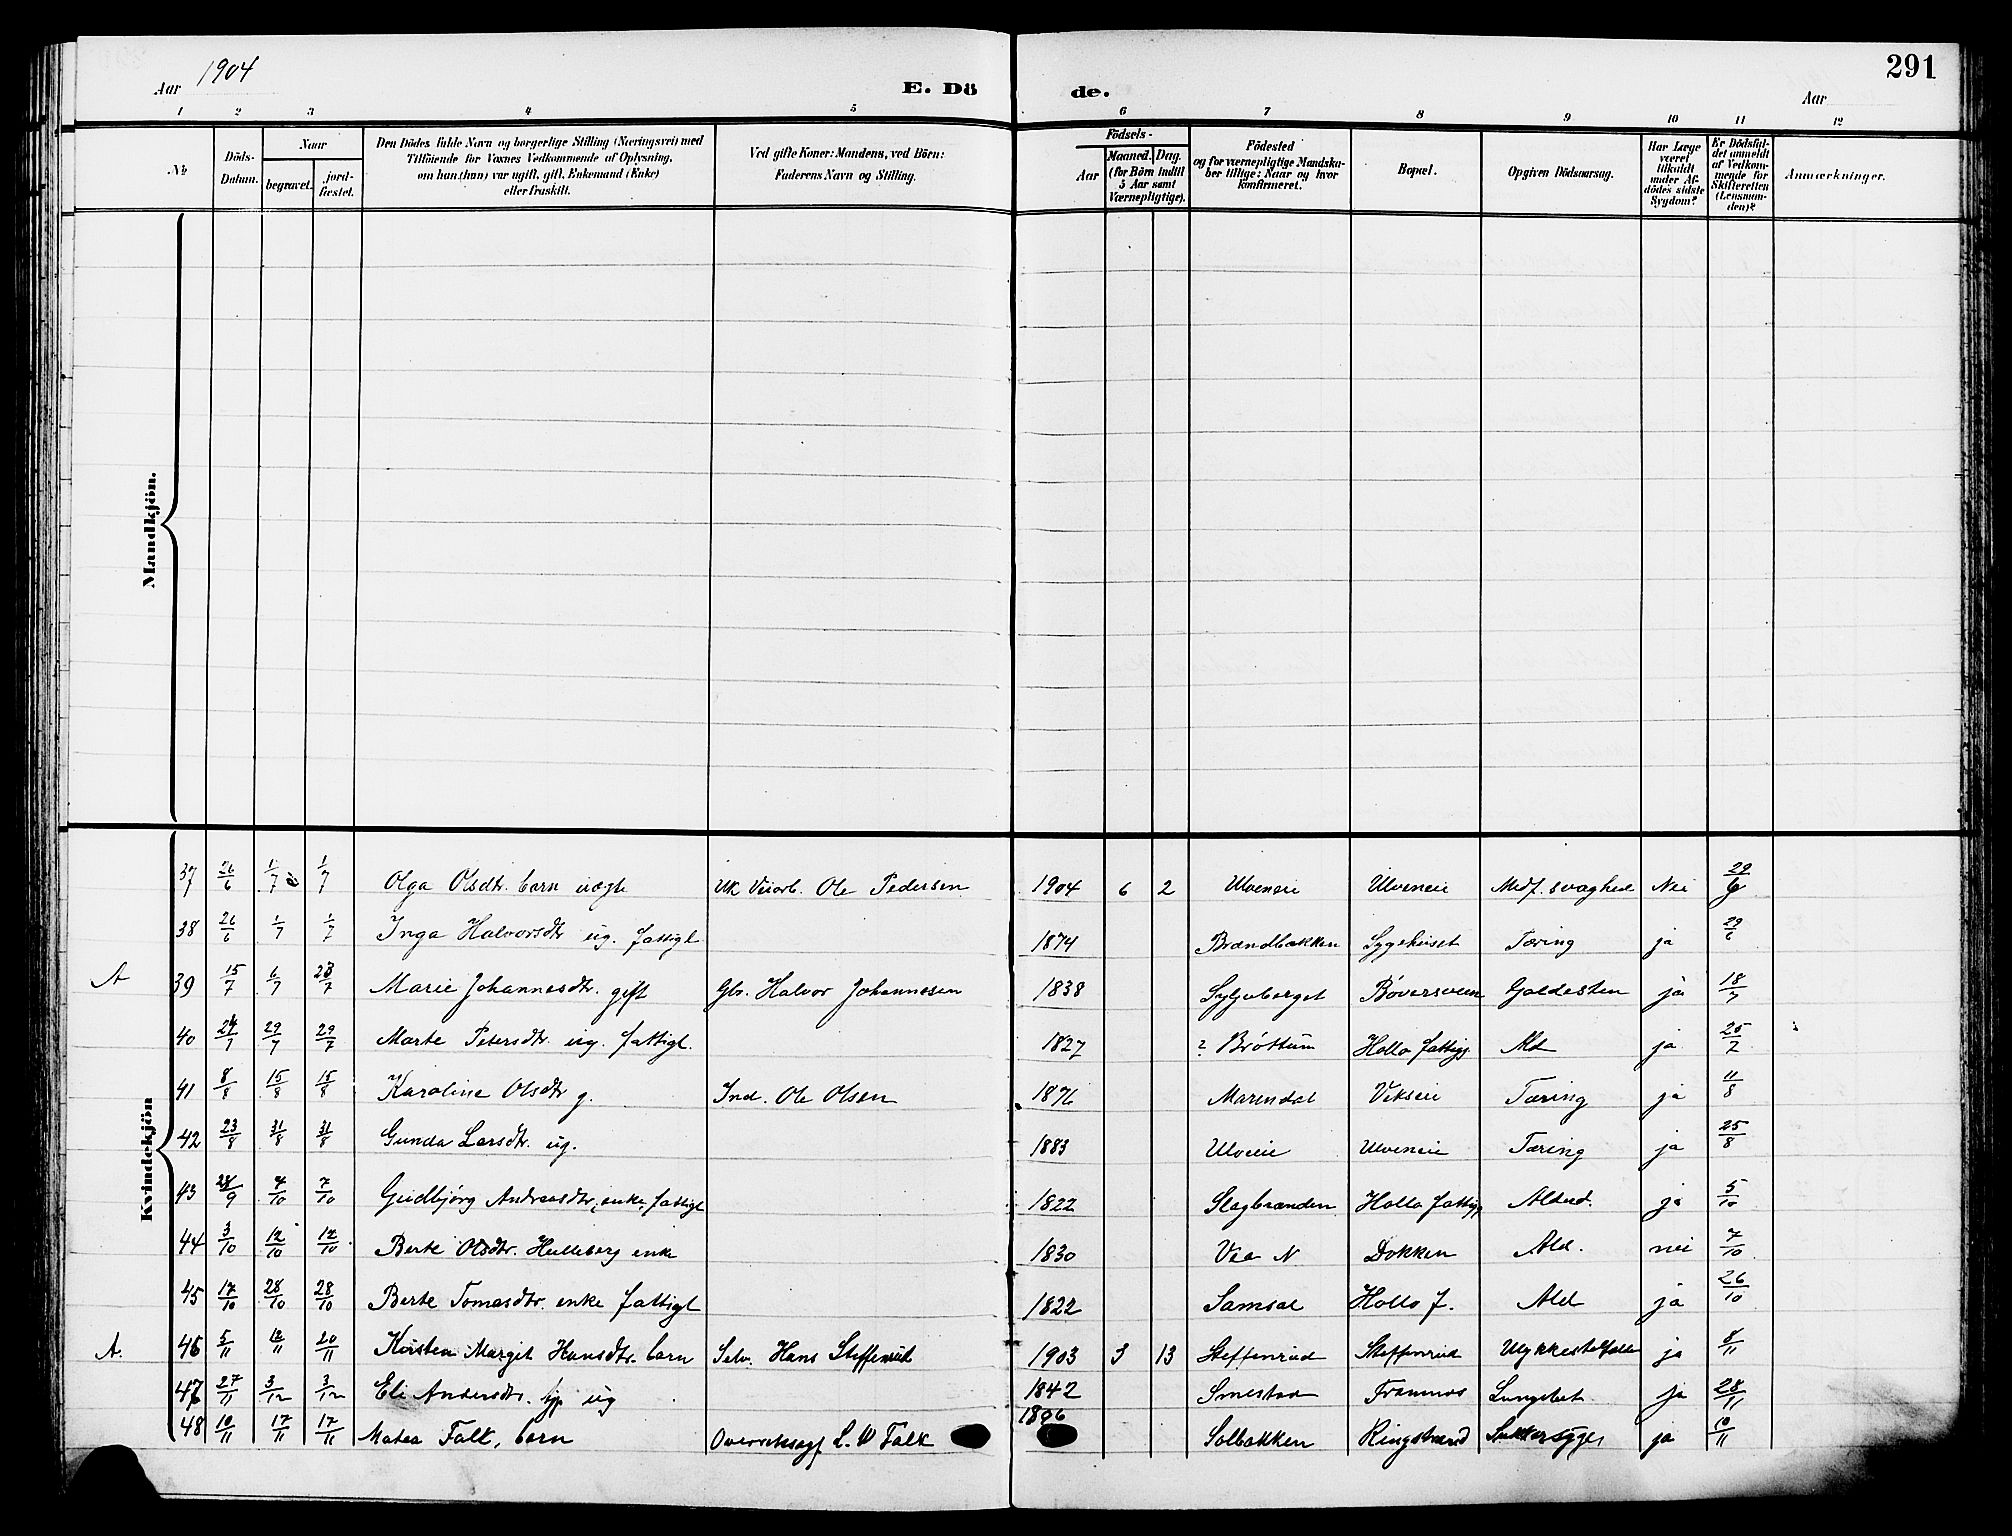 Aar 1904
E. Dö de.
291
Aar
1 2 3 4 5 6 7 8 9 10 11 12
No
Döds-Datum.
Naar
begravet.
jord-fæstet.
Den Dödes fulde Navn og borgerlige Stilling (Næringsvei) med
Tilföiende for Voxnes Vedkommende af Oplysning,
om han (hun) var ugift, gift, Enkemand (Enke)
eller fraskilt.
Ved gifte Koner: Mandens, ved Börn:
Faderens Navn og Stilling.
Födsels-
Aar
Maaned. Dag.
(for Börn indtil
5 Aar samt
Værnepligtige).
Födested
og for værnepligtige Mandska-
ber tillige: Naar og hvor
konfirmeret.
Bopæl.
Opgiven Dödsaarsag.
Har Læge
været
tilkaldt
under Af-
dödes sidste
Sygdom?
Er Dödsfal-
det anmeldt
af Vedkom-
mende for
Skifteretten
(Lensman-
den)?
Anmærkninger.
Mandkjön.
Kvindekjön
37 26/6 1/7 1/7 Olga Olsdtr. barn uægte Ole Pedersen 1904 6 2 Ulveneie Ulveneie Medf. svaghed Nei 29/6
38 26/6 1/7 1/7 Inga Halvorsdtr ug. fattigl 1874 Brændbakken Sygehuset Tæring ja 29/6
A 39 15/7 6/7 23/7 Marie Johannesdtr. gift Gbr. Halvor Johannesen 1838 Syljuberget Böversveen Galdesten ja 18/7
40 24/7 29/7 29/7 Marte Petersdtr. ug. fattigl. 1827 ? Bröttum Hollo fattigg Ald ja 25/7
41 8/8 15/8 15/8 Karoline Olsdtr g. Ind. Ole Olsen 1876 Marendal Vikseie Tæring ja 11/8
42 23/8 31/8 31/8 Gunda Larsdtr. ug. 1883 Ulveeie Ulveneie Tæring ja 25/8
43 28/9 4/10 7/10 Gudbjörg Andreasdtr, enke, fattigl 1822 Slagbrænden Hollo fattigg Alderd. ja 5/10
44 3/10 12/10 12/10 Berte Olsdtr. Hulleberg enke 1830 Vea N Dokken Ald. nei 7/10
45 17/10 28/10 28/10 Berte Tomasdtr. enke fattigl 1822 Samsal Hollo f. Ald ja 26/10
A. 46 5/11 12/11 20/11 Kirsten Margit Hansdtr. barn Selv. Hans Steffenrud 1903 3 13 Steffenrud Steffenrud Ulykkestilfælde ja 8/11
47 27/11 3/12 3/12 Eli Andersdtr. ug 1842 Smestad Framnæs Lungebet. ja 28/11
48 10/11 17/11 17/11 Matea Falk, barn L. W Falk 1896 Solbakken Ringstrand Sukkersyge, ja 10/11